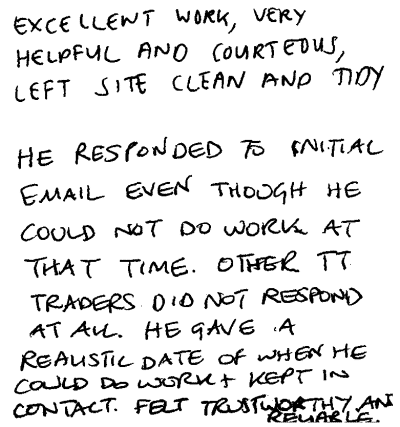 EXCELLENT WORK, VERY
HELPFUL AND COURTEOUS,
LEFT SITE CLEAN AND TIDY
HE RESPONDED TO INITIAL
EMAIL EVEN THOUGH HE
COULD NOT DO WORK AT
THAT TIME. OTHER TT
TRADERS DID NOT RESPOND
AT ALL. HE GAVE A
REALISTIC DATE OF WHEN HE
COULD DO WORK + KEPT IN
CONTACT. FELT TRUSTWORTHY AND
RELIABLE.